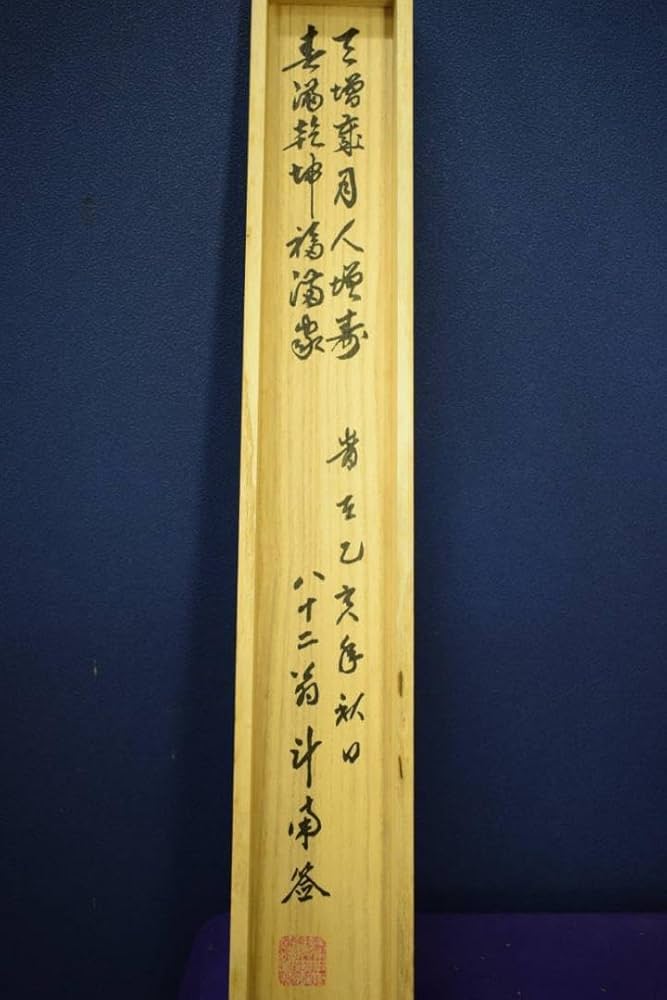 天增歲月人增壽
春滿乾坤福滿家
時在乙亥年秋日
八十二翁斗南签